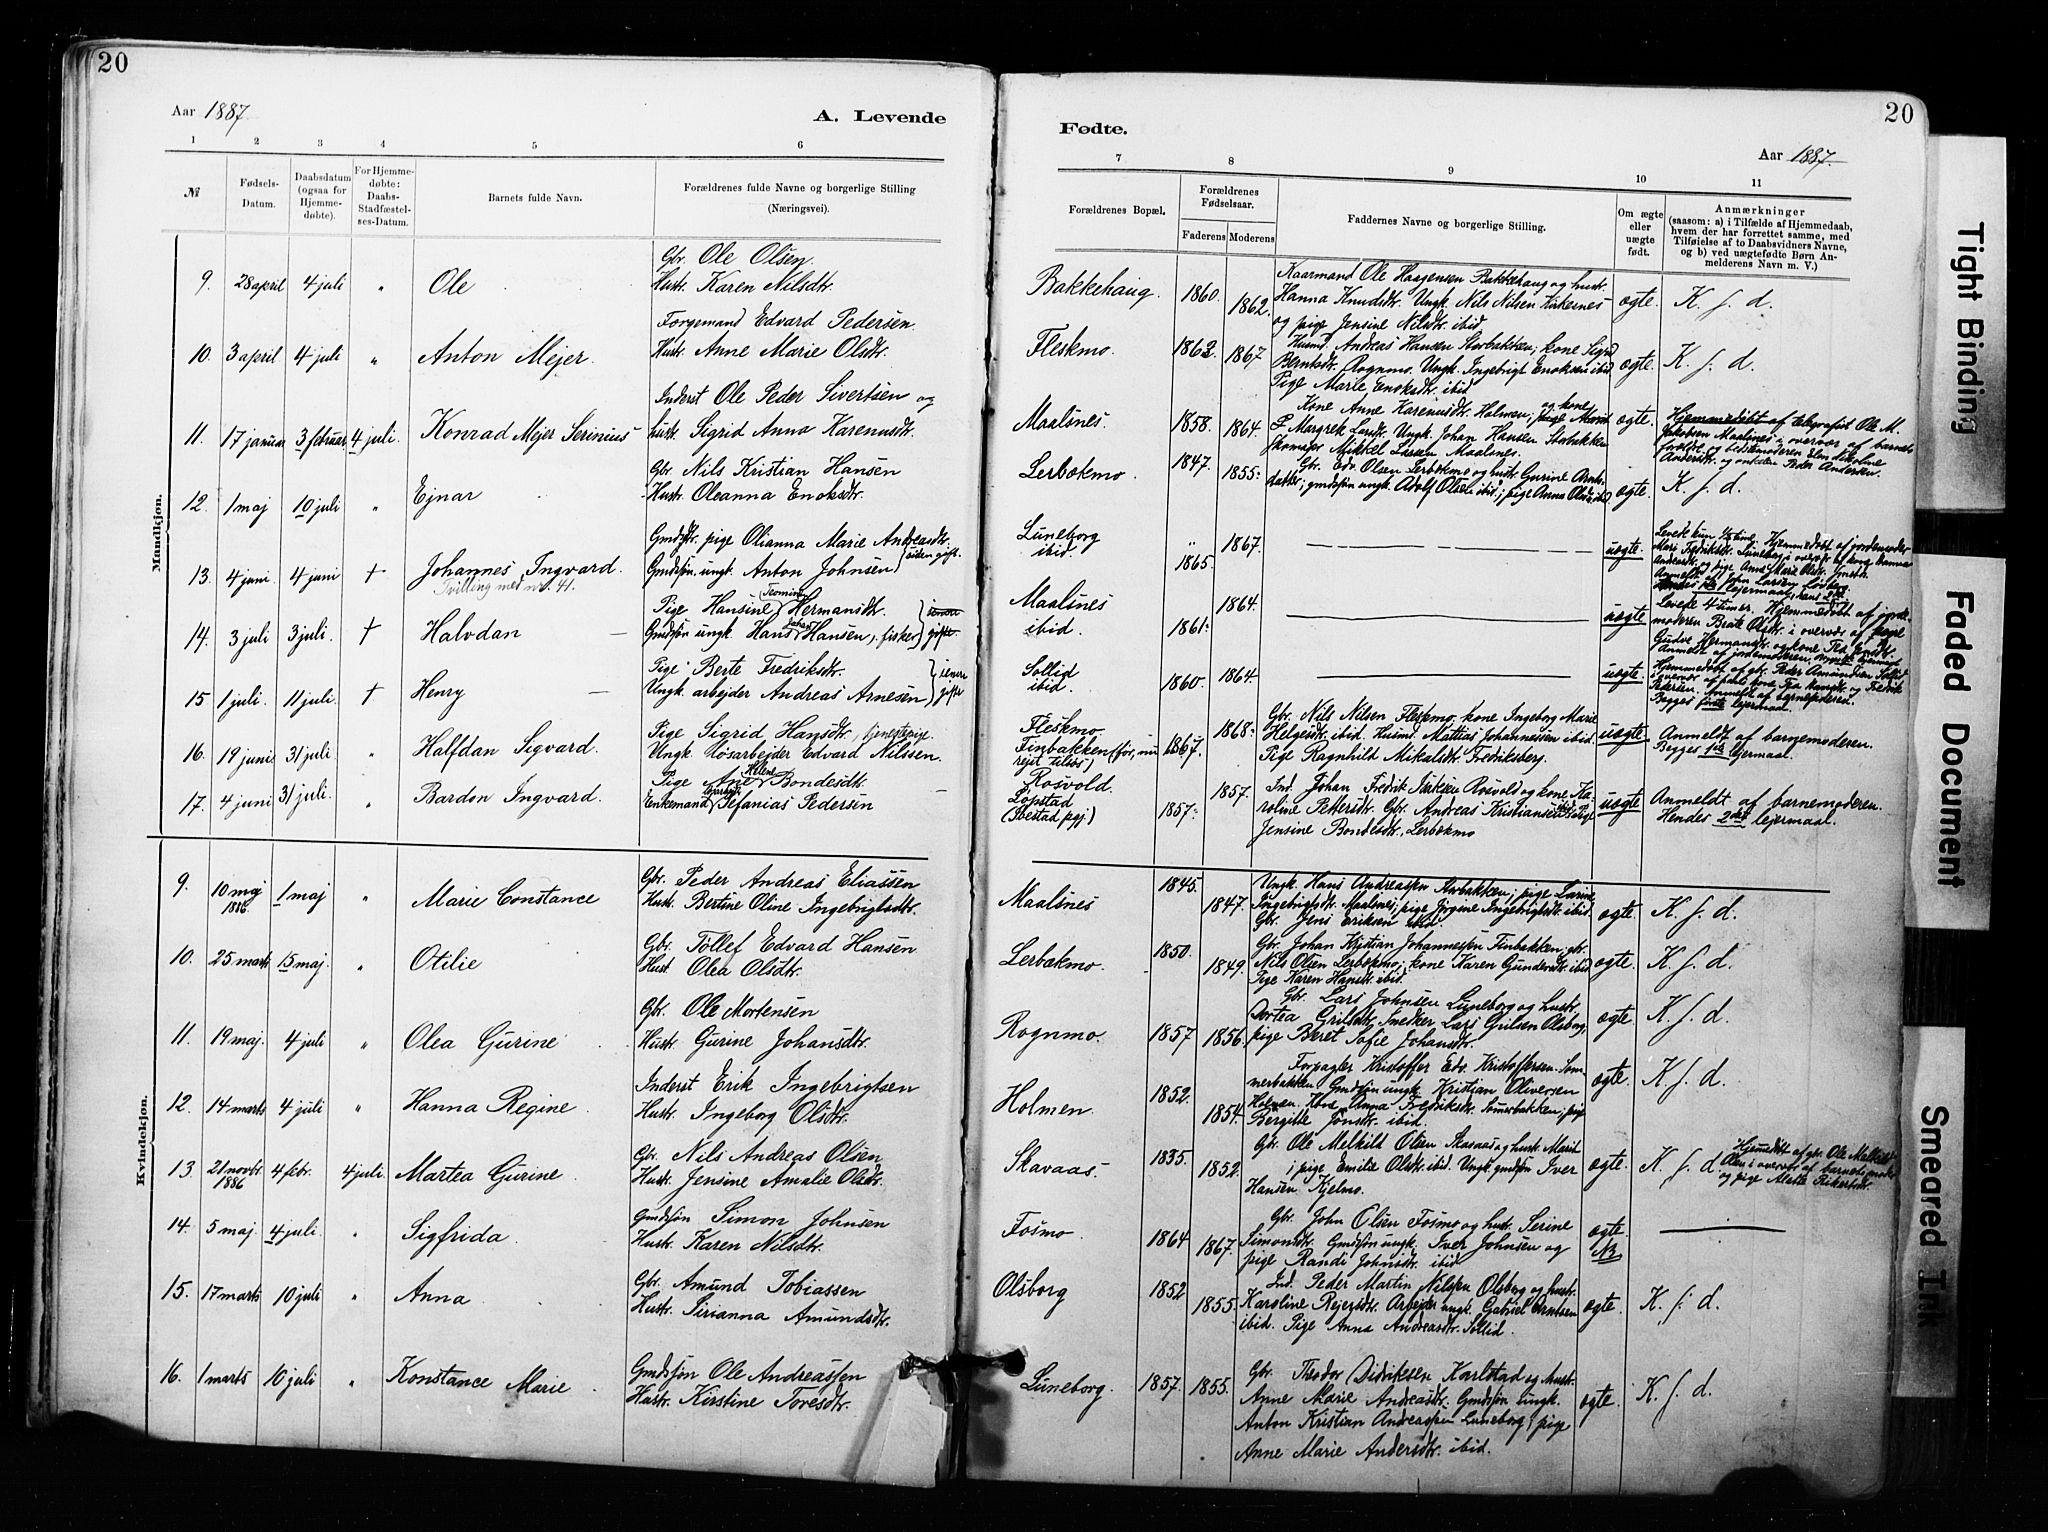 20
Aar 1887
A. Levende
1 2 3 4 5 6
№
Fødsels-Datum.
Daabsdatum (ogsaa for Hjemmedøbte).
For Hjemmedøbte: Daabs-Stadfæstelses-Datum.
Barnets fulde Navn.
Forældrenes fulde Navne og borgerlige Stilling (Næringsvei).
Mandkjøn.
Gbr. Ole Olsen
9. 28 april 4 juli " Ole Hustr. Karen Nilsdtr.
Forgemand Edvard Pedersen
10. 3 april 4 juli " Anton Mejer Hustr. Anne Marie Olsdtr.
Inderst Ole Peder Sivertsen og
11. 17 januar 3 februar 4 juli. Konrad Mejer Serinius hustr. Sigrid Anna Karenusdtr.
Gbr. Nils Kristian Hansen
12. 1 maj 10 juli " Ejnar Hustr. Oleanna Enoksdtr.
Gmdsdtr. pige Olianna Marie Andreasdtr.
13. 4 juni 4 juni † Johannes Ingvard. Gmdssøn ungk. Anton Johnsen siden gift.
Tvilling med nr. 41.
Pige Hansine Hermansdtr.
14. 3 juli 3 juli. † Halvdan Gmdssøn ungk. Hans Johan Hansen, fisker
Pige Berte Fredriksdtr.
15 1 juli. 11 juli. † Henry Ungk. arbejder Andreas Arnesen senere gifte
Pige Sigrid Hansdtr, tjenestepige
16. 19 juni 31 juli. " Halfdan Sigvard. Ungk. løsarbejder Edvard Nilssen.
Pige Ane Helene Bondesdtr.
17. 4 juni 31 juli. " Bardon Ingvard. Enkemand Zefanias Pedersen
Kvindekjøn.
9. 10 maj 1886. 1 maj " Marie Constance Gbr. Peder Andreas Eliassen
Hustr. Bertine Oline Ingebrigtsdtr.
10. 25 marts 15 maj. " Otilie Gbr. Tollef Edvard Hansen
Hust. Olea Olsdtr.
Gbr. Ole Mortensen
11. 19 maj. 4 juli " Olea Gurine Hustr. Gurine Johansdtr.
Inderst Erik Ingebrigtsen
12. 14 marts 4 juli " Hanna Regine Hustr. Ingeborg Olsdtr.
Gbr. Nils Andreas Olsen
13 21 novbr. 1886 4 febr. 4 juli. Martea Gurine Hustr. Jensine Amalie Olsdtr.
14. 5 maj. 4 juli. " Sigfrida Gmdssøn Simon Johnsen
Hustr. Karen Nilsdtr.
15. 17 marts 10 juli " Anna Gbr. Amund Tobiassen
Hustr. Sirianna Amundsdtr.
16. 1 marts 10 juli " Konstance Marie Gmdssøn Ole Andreassen
Hustr. Kirstine Toresdtr.
20
Fødte.
Aar 1887.
7 8 9 10 11
Forældrenes Bopæl.
Forældrenes Fødselsaar.
Faderens Moderens
Faddernes Navne og borgerlige Stilling.
Om ægte eller uægte født.
Anmærkninger
(saasom: a) i Tilfælde af Hjemmedaab, hvem der har forrettet samme, med Tilføielse af to Daabsvidners Navne, og b) ved uægtefødte Børn Anmelderens Navn m. V.)
Bakkehaug. 1860. 1862. Kaarmand Ole Haagensen Bakkehaug og hustr.
Hanna Knudsdtr. Ungk. Nils Nilsen Kirkenes
og pige Jensine Nilsdtr. ibid
ægte. K. f. d.
Fleskmo. 1862. 1867 Husmd. Andreas Hansen Storbakken; kone Sigrid
Berntsdtr. Rognmo. Ungk. Ingebrigt Enoksen ibid
Pige Marie Enoksdtr. ibid
ægte. K. f. d.
Maalsnes. 1858. 1864. Kone Anne Karenusdtr. Holmen; og kone
Margrek Larsdtr. Ungk. Johan Hansen Storbakken
Skomager Mikkel Larsen Maalsnes.
ægte.
Hjemmedøbt af telegrafist Ole M.
Jakobsen Maalsnes i overvær af barnets
forældre, og bedstemoderen Elen Nikoline
Andersdtr. og onkelen Peder Andersen.
Lerbekmo 1847. 1855. Gbr. Edv. Olsen Lerbekmo og hustr. Gurine Arntsdatter; gmdssøn ungk. Adolf Olsen ibid; pige Anna Olsdtr. ibid
ægte. K. f. d.
Luneborg ibid " 1865. 1867.
uægte.
Levede kun ½ time. Hjemmedøbt af jordemoder
Maalsnes ibid. 1861. 1864.
uægte
Levede 4 timer. Hjemmedøbt af jordemoderen Brate Olsdtr. i overvær af pige
Sollid ibid. 1860. 1864.
uægte.
Hjemmedøbt af gbr. Peder Amundsen Sollid
Begges første lejermaal.
Fleskmo Finbakken (før, nu rejst tilsøs) 1867. 1868. Gbr. Nils Nilsen Fleskmo, kone Ingeborg Marie
Helgesdtr. ibid. Husmd. Mattias Johannessen ibid.
Pige Ragnhild Mikalsdtr. Fredriksberg.
uægte. Anmeldt af barnemoderen.
Begges 1ste lejermaal.
Rosvold Løpstad (Ibestad pgj.) 1857. 1857. Ind. Johan Fredrik Isaksen Rosvold og kone Karoline Pettersdtr. Gbr. Andreas Kristiansen ibid. Pige
Jensine Bondesdtr. Lerbekmo
uægte Anmeldt af barnemoderen.
Hendes 2det lejermaal.
Maalsnes 1845. 1847. Ungk. Hans Andreassen Storbakken; pige Larine
Ingebrigtsdtr. Maalsnes; pige Jørgine Ingebrigtsdtr. ibid.
Gbr. Jens Eriksen ibid.
ægte. K. f. d.
Lerbekmo. 1850. 1849. Gbr. Johan Kristian Johannessen Finbakken; gbr.
Nils Olsen Lerbekmo; kone Karen Gundersdtr. ibid
Pige Karen Hansdtr. ibid.
ægte. K. f. d.
Rognmo 1857 1856. Gbr. Lars Johnsen Luneborg og hustr.
Dortea Grilsdtr. Snedker Lars Grilsen Olsborg,
pige Beret Sofie Johansdtr.
ægte K. f. d.
Holmen 1852. 1854. Forpagter Kristoffer Edv. Kristoffersen Sommerbakken, Gmdssøn ungk. Kristian Oliversen
Holmen. Kone Anna Fredriksdtr. Somerbakken; pige
Bergitte Jonsdtr. ibid.
ægte. K. f. d.
Skavaas 1835. 1852. Gbr. Ole Melkild Olsen Skavaas og hustr. Marit
; pige Emilie Olsdtr. ibid. Ungk. gmdssøn Iver
Hansen Kjelmo.
ægte. K. f. d.
Hjemdøbt af gbr. Ole Melkild
Olsen i overvær af barnets moder
og pige Alette Rikertsdtr.
Fosmo 1864 1867. Gbr. John Olsen Fosmo og hustr. Serine
Simonsdtr. Gmdssøn ungk. Iver Johnsen og
pige Randi Johnsdtr. ibid
ægte. N3
Olsborg 1852 1855. Ind. Peder Martin Nilsen Olsborg og hustr.
Karoline Rejersdtr. Arbejder ungk. Gabriel Arntsen
ibid. Pige Anna Andreasdtr. Sollid.
ægte. K. f. d.
Luneborg. 1857. 1855. Gbr. Theodor Didriksen Karlstad og hustr.
Anne Marie Andreasdtr. Gmdssøn ungk.
Anton Kristian Andreassen Luneborg; pige
Anne Marie Andersdtr. ibid.
ægte. K. f. d.
Tight Binding
Faded Document
Smeared Ink